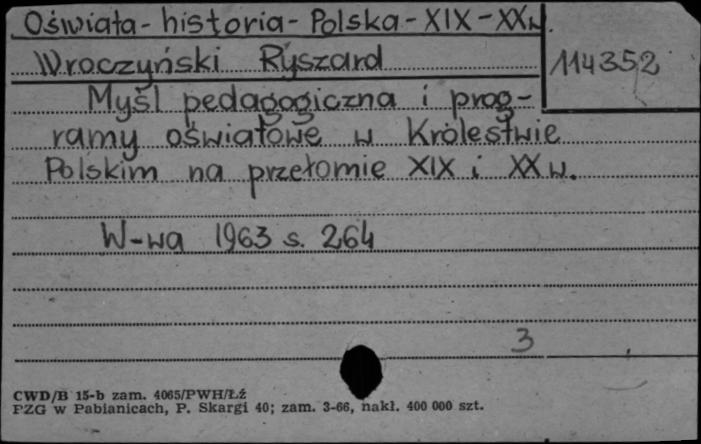 Oświata - historia - Polska - XIX - XX w.
Wroczyński Ryszard
114352
Myśl pedagogiczna i prog-
ramy oświatowe w Królestwie
Polskim na przełomie XIX i XX w.
W-wa 1963 s. 264
3
CWD/B 15-b zam. 4065/PWH/Łź
PZG w Pabianicach, P. Skargi 40; zam. 3-66, nakł. 400 000 szt.